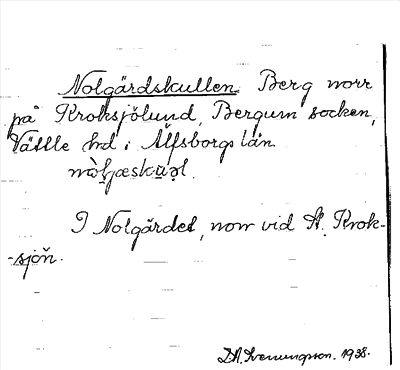 Nolgärdskullen. Berg norr
på Kroksjölund, Bergum socken,
Vättle hd i Älfsborgs län.
I Nolgärdet, norr vid St. Krok-
-sjön.
1938.